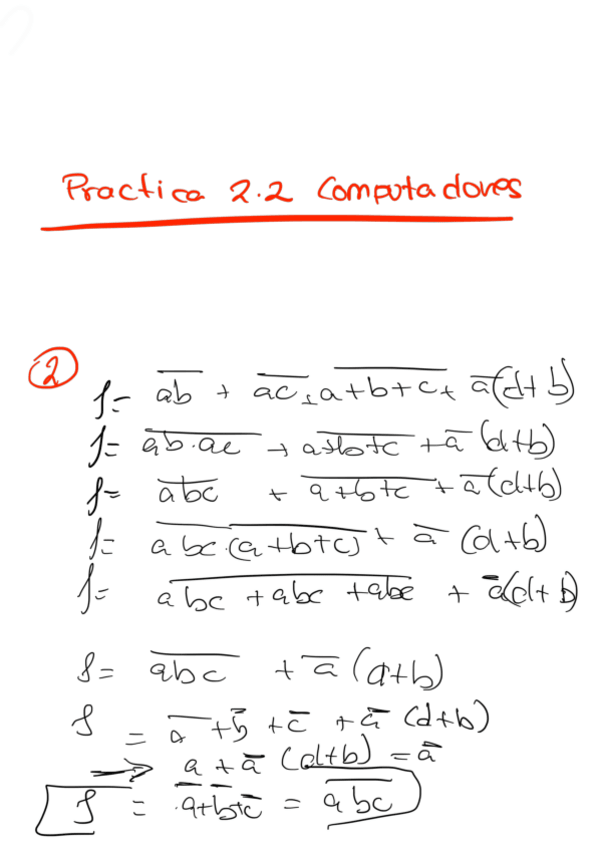 Practica 2.2 Computadores
②
f= \overline{ab} + \overline{ac} + \overline{a+b+c} + \overline{a}(d+b)
f= \overline{ab·ac} + \overline{a+b+c} + \overline{a} (d+b)
f= \overline{abc} + \overline{a+b+c} + \overline{a}(d+b)
f= \overline{abc·(a+b+c)} + \overline{a} (d+b)
f= \overline{abc + abc + abc} + \overline{a}(d+b)
f= \overline{abc} + \overline{a} (d+b)
f = \overline{a} + \overline{b} + \overline{c} + \overline{a} (d+b)
→ \overline{a} + \overline{a} (d+b) = \overline{a}
f = \overline{a}+\overline{b}+\overline{c} = \overline{abc}